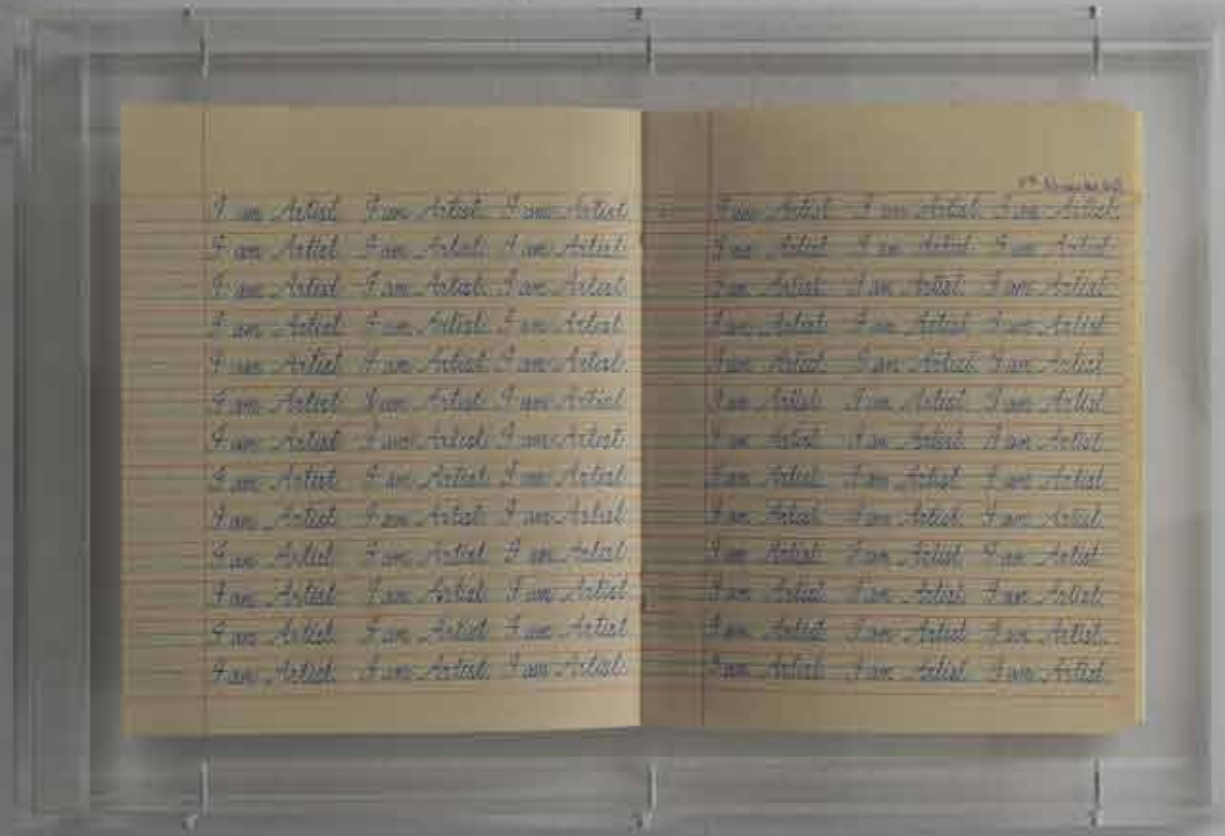 I am Artist. I am Artist. I am Artist.
I am Artist. I am Artist. I am Artist.
I am Artist. I am Artist. I am Artist.
I am Artist. I am Artist. I am Artist.
I am Artist. I am Artist. I am Artist.
I am Artist. I am Artist. I am Artist.
I am Artist. I am Artist. I am Artist.
I am Artist. I am Artist. I am Artist.
I am Artist. I am Artist. I am Artist.
I am Artist. I am Artist. I am Artist.
I am Artist. I am Artist. I am Artist.
I am Artist. I am Artist. I am Artist.
I am Artist. I am Artist. I am Artist.
November
I am Artist. I am Artist. I am Artist.
I am Artist. I am Artist. I am Artist.
I am Artist. I am Artist. I am Artist.
I am Artist. I am Artist. I am Artist.
I am Artist. I am Artist. I am Artist.
I am Artist. I am Artist. I am Artist.
I am Artist. I am Artist. I am Artist.
I am Artist. I am Artist. I am Artist.
I am Artist. I am Artist. I am Artist.
I am Artist. I am Artist. I am Artist.
I am Artist. I am Artist. I am Artist.
I am Artist. I am Artist. I am Artist.
I am Artist. I am Artist. I am Artist.